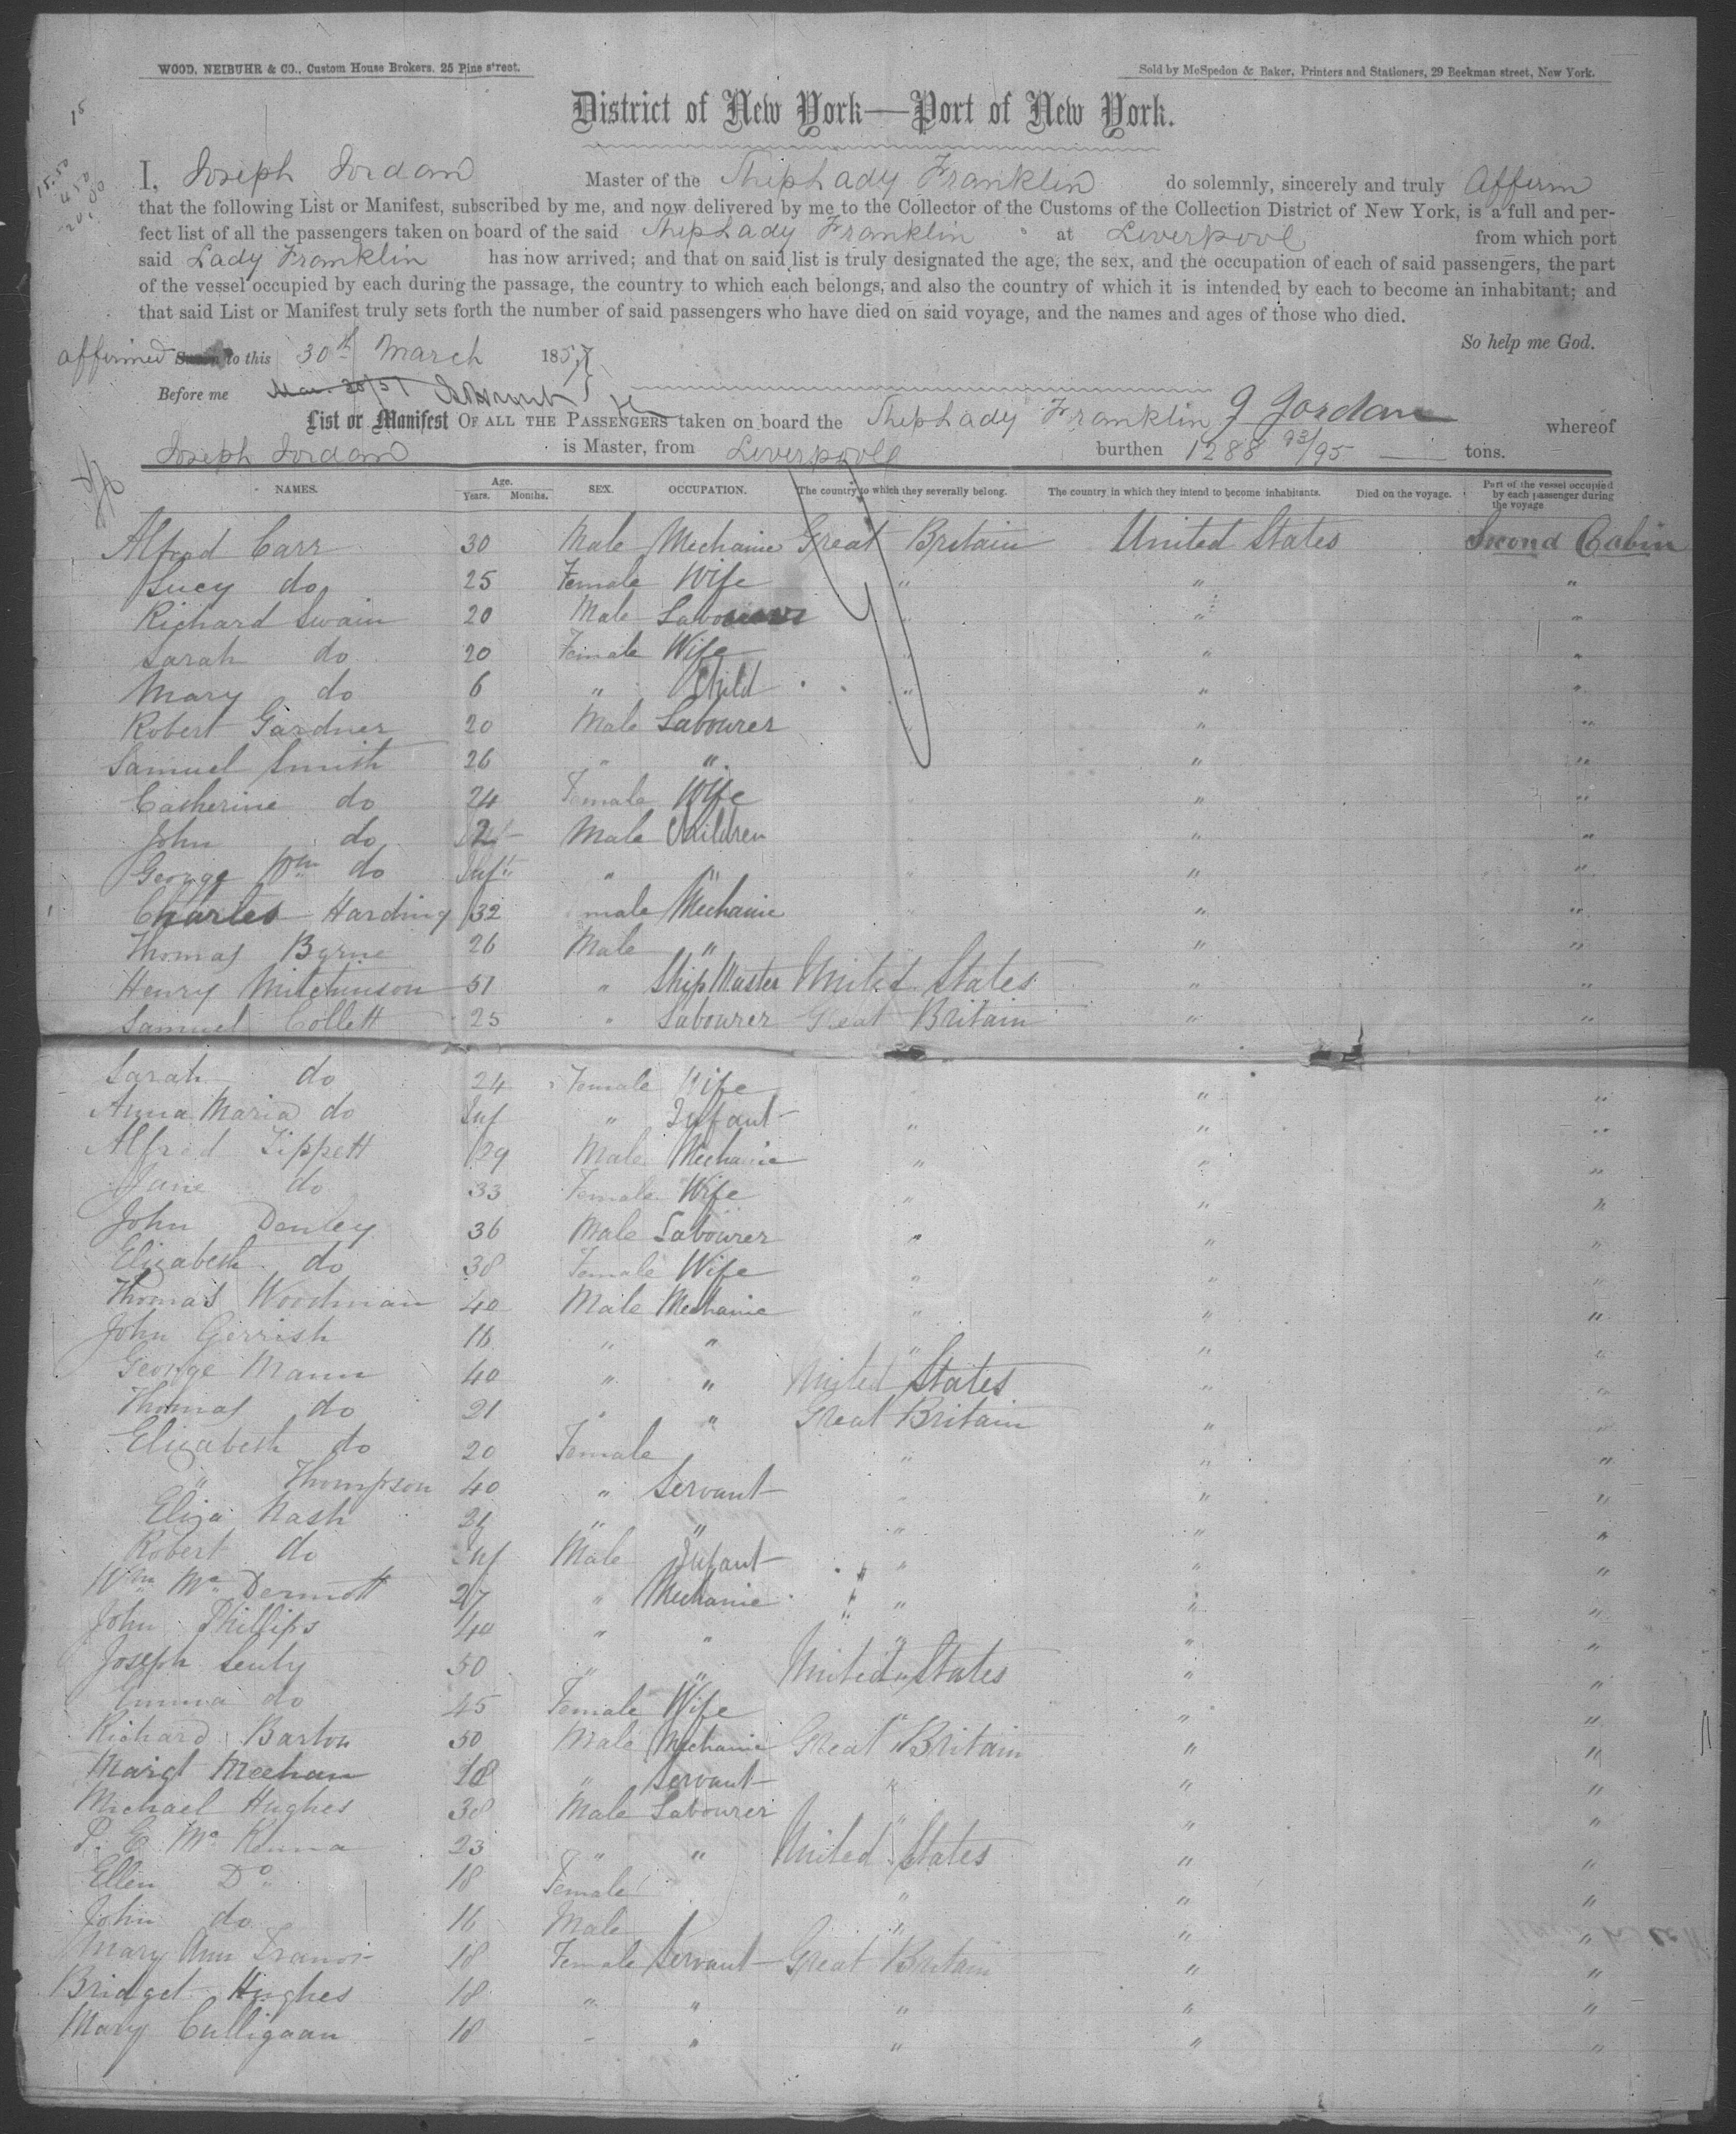 WOOD, NEIBUHR & CO., Custom House Brokers, 25 Pine street.
Sold by McSpedon & Baker, Printers and Stationers, 29 Beekman street, New York.
18
15.50
4.50
20.00
District of New York—Port of New York.
I, Joseph Jordan Master of the Ship Lady Franklin do solemnly, sincerely and truly Affirm
that the following List or Manifest, subscribed by me, and now delivered by me to the Collector of the Customs of the Collection District of New York, is a full and per-
fect list of all the passengers taken on board of the said Ship Lady Franklin at Liverpool from which port
said Lady Franklin has now arrived; and that on said list is truly designated the age, the sex, and the occupation of each of said passengers, the part
of the vessel occupied by each during the passage, the country to which each belongs, and also the country of which it is intended by each to become an inhabitant; and
that said List or Manifest truly sets forth the number of said passengers who have died on said voyage, and the names and ages of those who died.
So help me God.
affirmed Sworn to this 30th March 1857
Before me Mar. 30/57
J Jordan
List or Manifest OF ALL THE PASSENGERS taken on board the Ship Lady Franklin whereof
Joseph Jordan is Master, from Liverpool burthen 1288 93/95 tons.
NAMES. Age. Years. Months. SEX. OCCUPATION. The country to which they severally belong. The country in which they intend to become inhabitants. Died on the voyage. Part of the vessel occupied by each passenger during the voyage
Alfred Carr 30 Male Mechanic Great Britain United States Second Cabin
Lucy do 25 Female Wife " " "
Richard Swain 20 Male Labourer " " "
Sarah do 20 Female Wife " " "
Mary do 6 " Child " " "
Robert Gardner 20 Male Labourer " " "
Samuel Smith 26 " " " "
Catherine do 24 Female Wife " " "
John do 2 Male Children " " "
George Wm do Inft " " " " "
Charles Harding 32 male Mechanic " " "
Thomas Byrne 26 Male " " "
Henry Mitchinson 51 " Ship Master United States " "
Samuel Collett 25 " Labourer Great Britain " "
Sarah do 24 Female Wife " "
Anna Maria do Inf " Infant " " "
Alfred Tippett 29 Male Mechanic " " "
Jane do 33 Female Wife " " "
John Danley 36 Male Labourer " " "
Elizabeth do 38 Female Wife " " "
Thomas Woodman 40 Male Mechanic " " "
John Gerrish 16 " " " " "
George Mann 40 " " United States " "
Thomas do 21 " " Great Britain " "
Elizabeth do 20 Female " " "
" Thompson 40 " Servant " " "
Eliza Nash 24 " " " " "
Robert do Inf Male Infant " " "
Wm McDermott 27 " Mechanic " " "
John Phillips 40 " " " " "
Joseph 50 " " United States " "
Emma do 45 Female Wife " " "
Richard Barton 50 Male Mechanic Great Britain " "
Margt Meehan 18 " Servant " " "
Michael Hughes 38 Male Labourer " " "
P. E. McKenna 23 " " United States " "
Ellen Do 18 Female " " "
John do 16 Male " " "
Mary Ann 18 Female Servant Great Britain " "
Bridget Hughes 18 " " " " "
Mary Culligaan 18 " " " " "